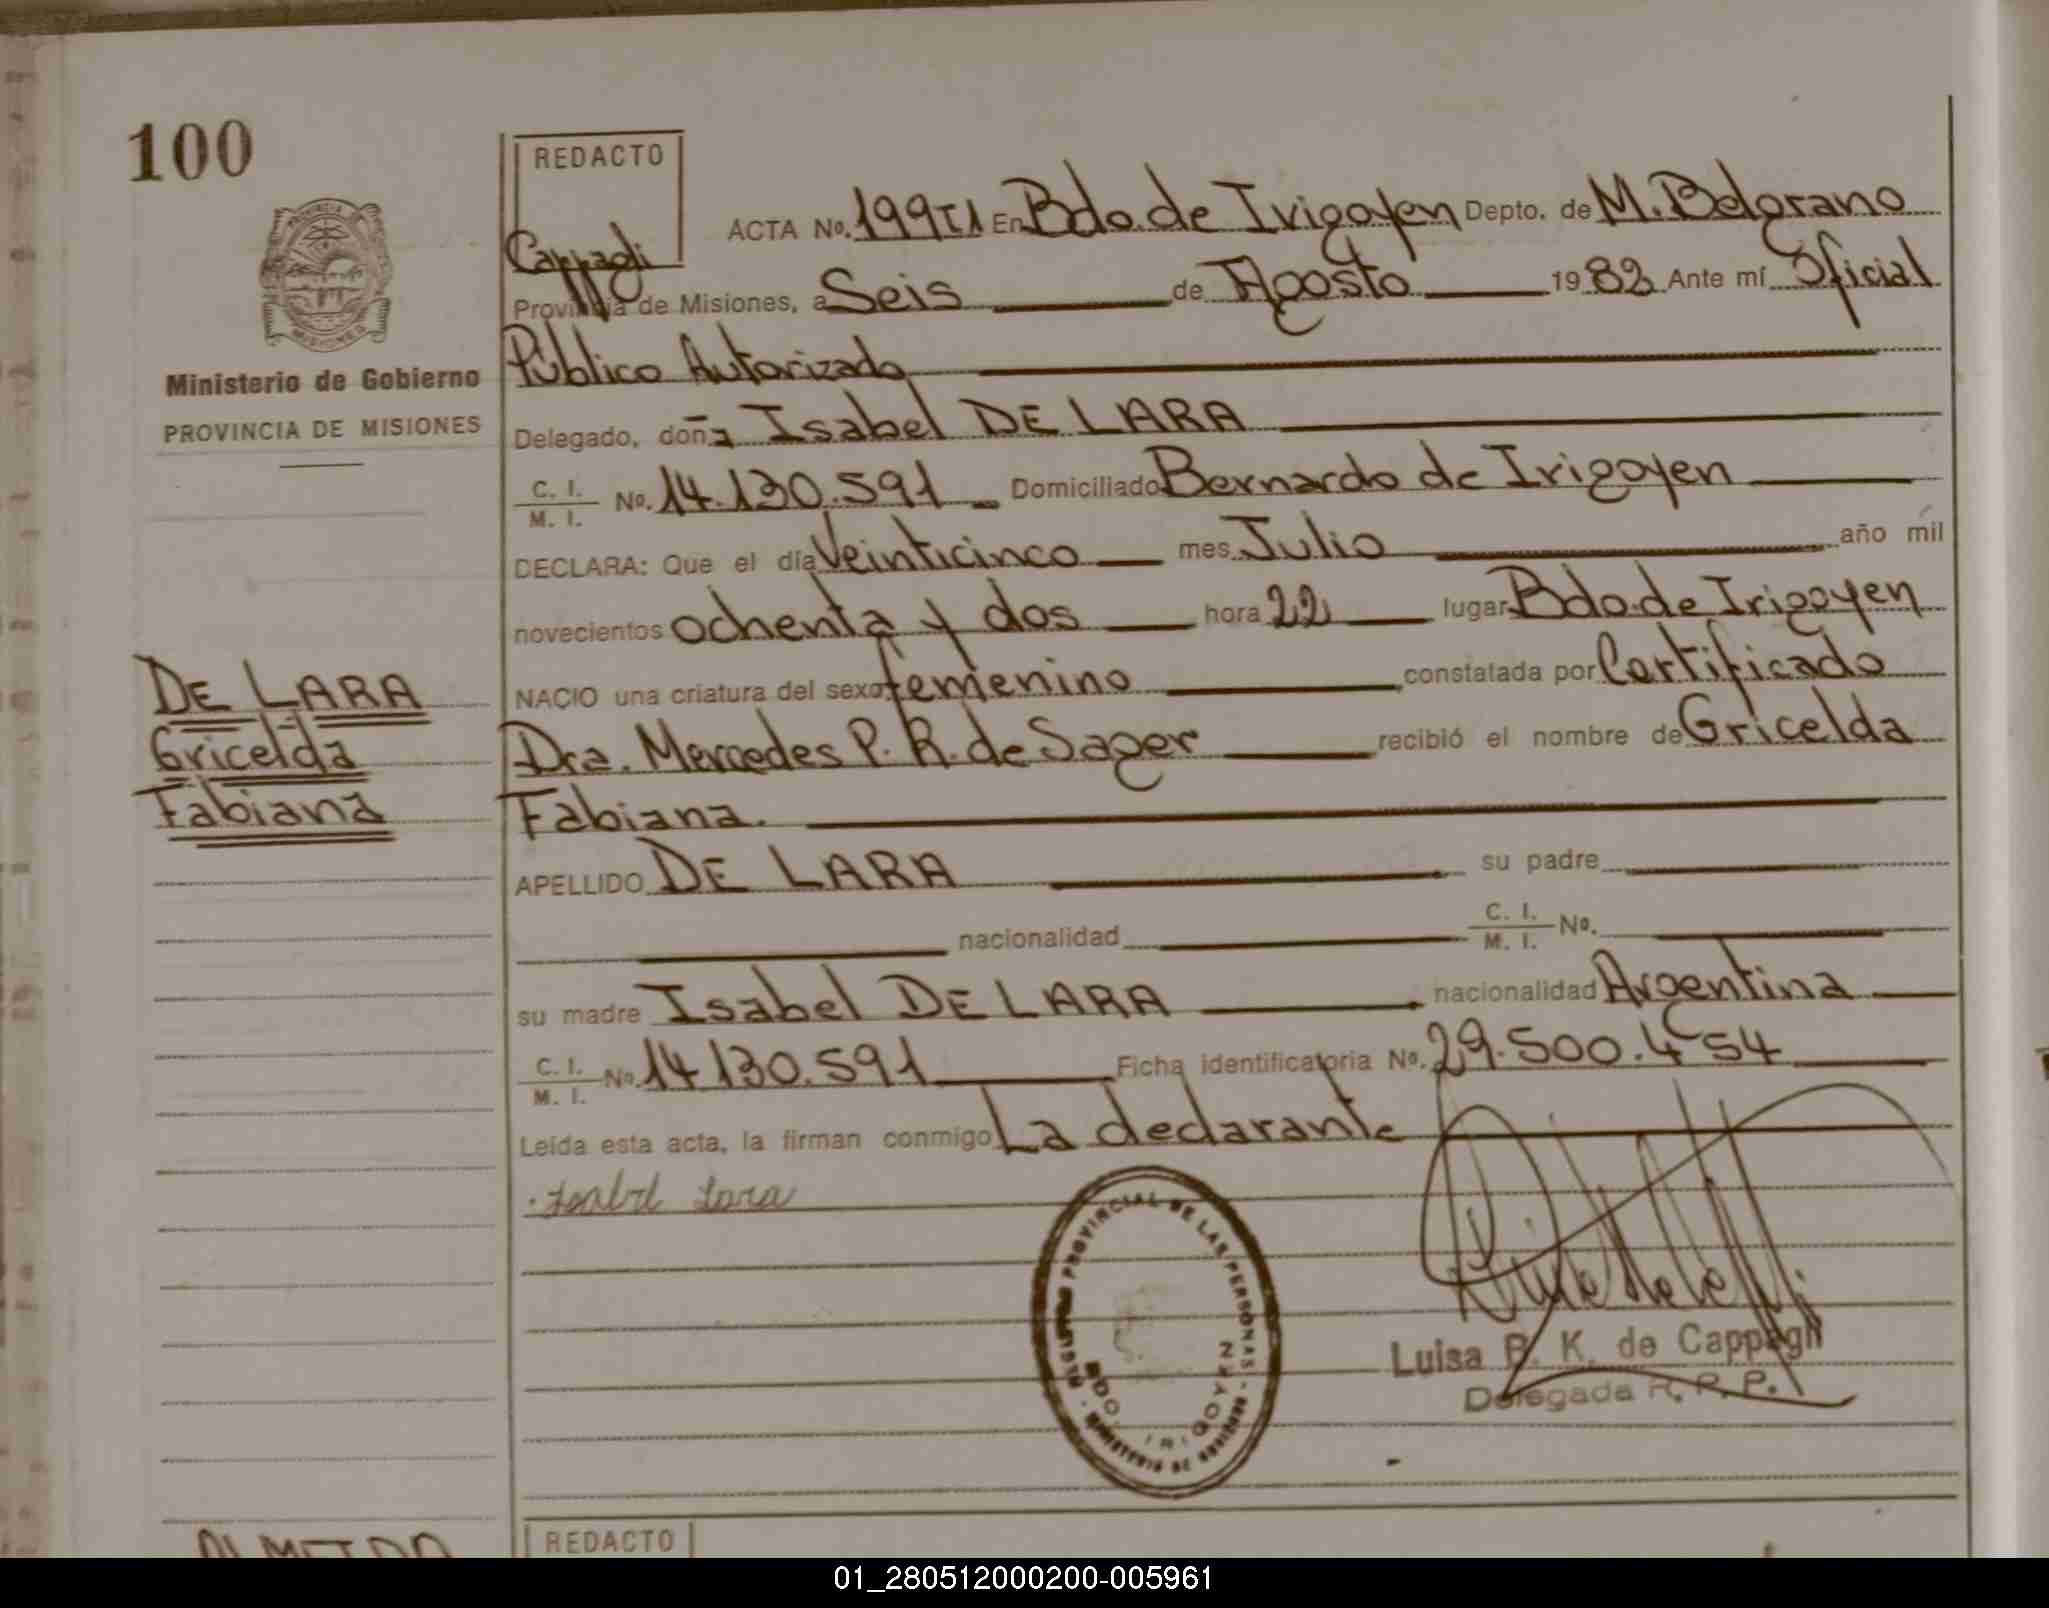 100
REDACTO
Cappagli
ACTA No. 199 T1 En Bdo. de Irigoyen Depto. de M. Belgrano
Provincia de Misiones, a Seis de Agosto 1982 Ante mí Oficial
Público Autorizado
Delegado, doña Isabel DE LARA
C. I. / M. I. No. 14.130.591 Domiciliado Bernardo de Irigoyen
DECLARA: Que el día Veinticinco mes Julio año mil
novecientos ochenta y dos hora 22 lugar Bdo. de Irigoyen
NACIO una criatura del sexo femenino constatada por Certificado
Dra. Mercedes P. R. de Sager recibió el nombre de Gricelda
Fabiana.
APELLIDO DE LARA su padre
nacionalidad C. I. / M. I. No.
su madre Isabel DE LARA nacionalidad Argentina
C. I. / M. I. No. 14.130.591 Ficha identificatoria No. 29.500.454
Leída esta acta, la firman conmigo La declarante
Isabel Lara
Luisa P. K. de Cappagli
Delegada R. P. P.
PROVINCIAL DE LAS PERSONAS
BDO. IRIGOYEN
MISIONES
Ministerio de Gobierno
PROVINCIA DE MISIONES
DE LARA
Gricelda
Fabiana
REDACTO
01_280512000200-005961